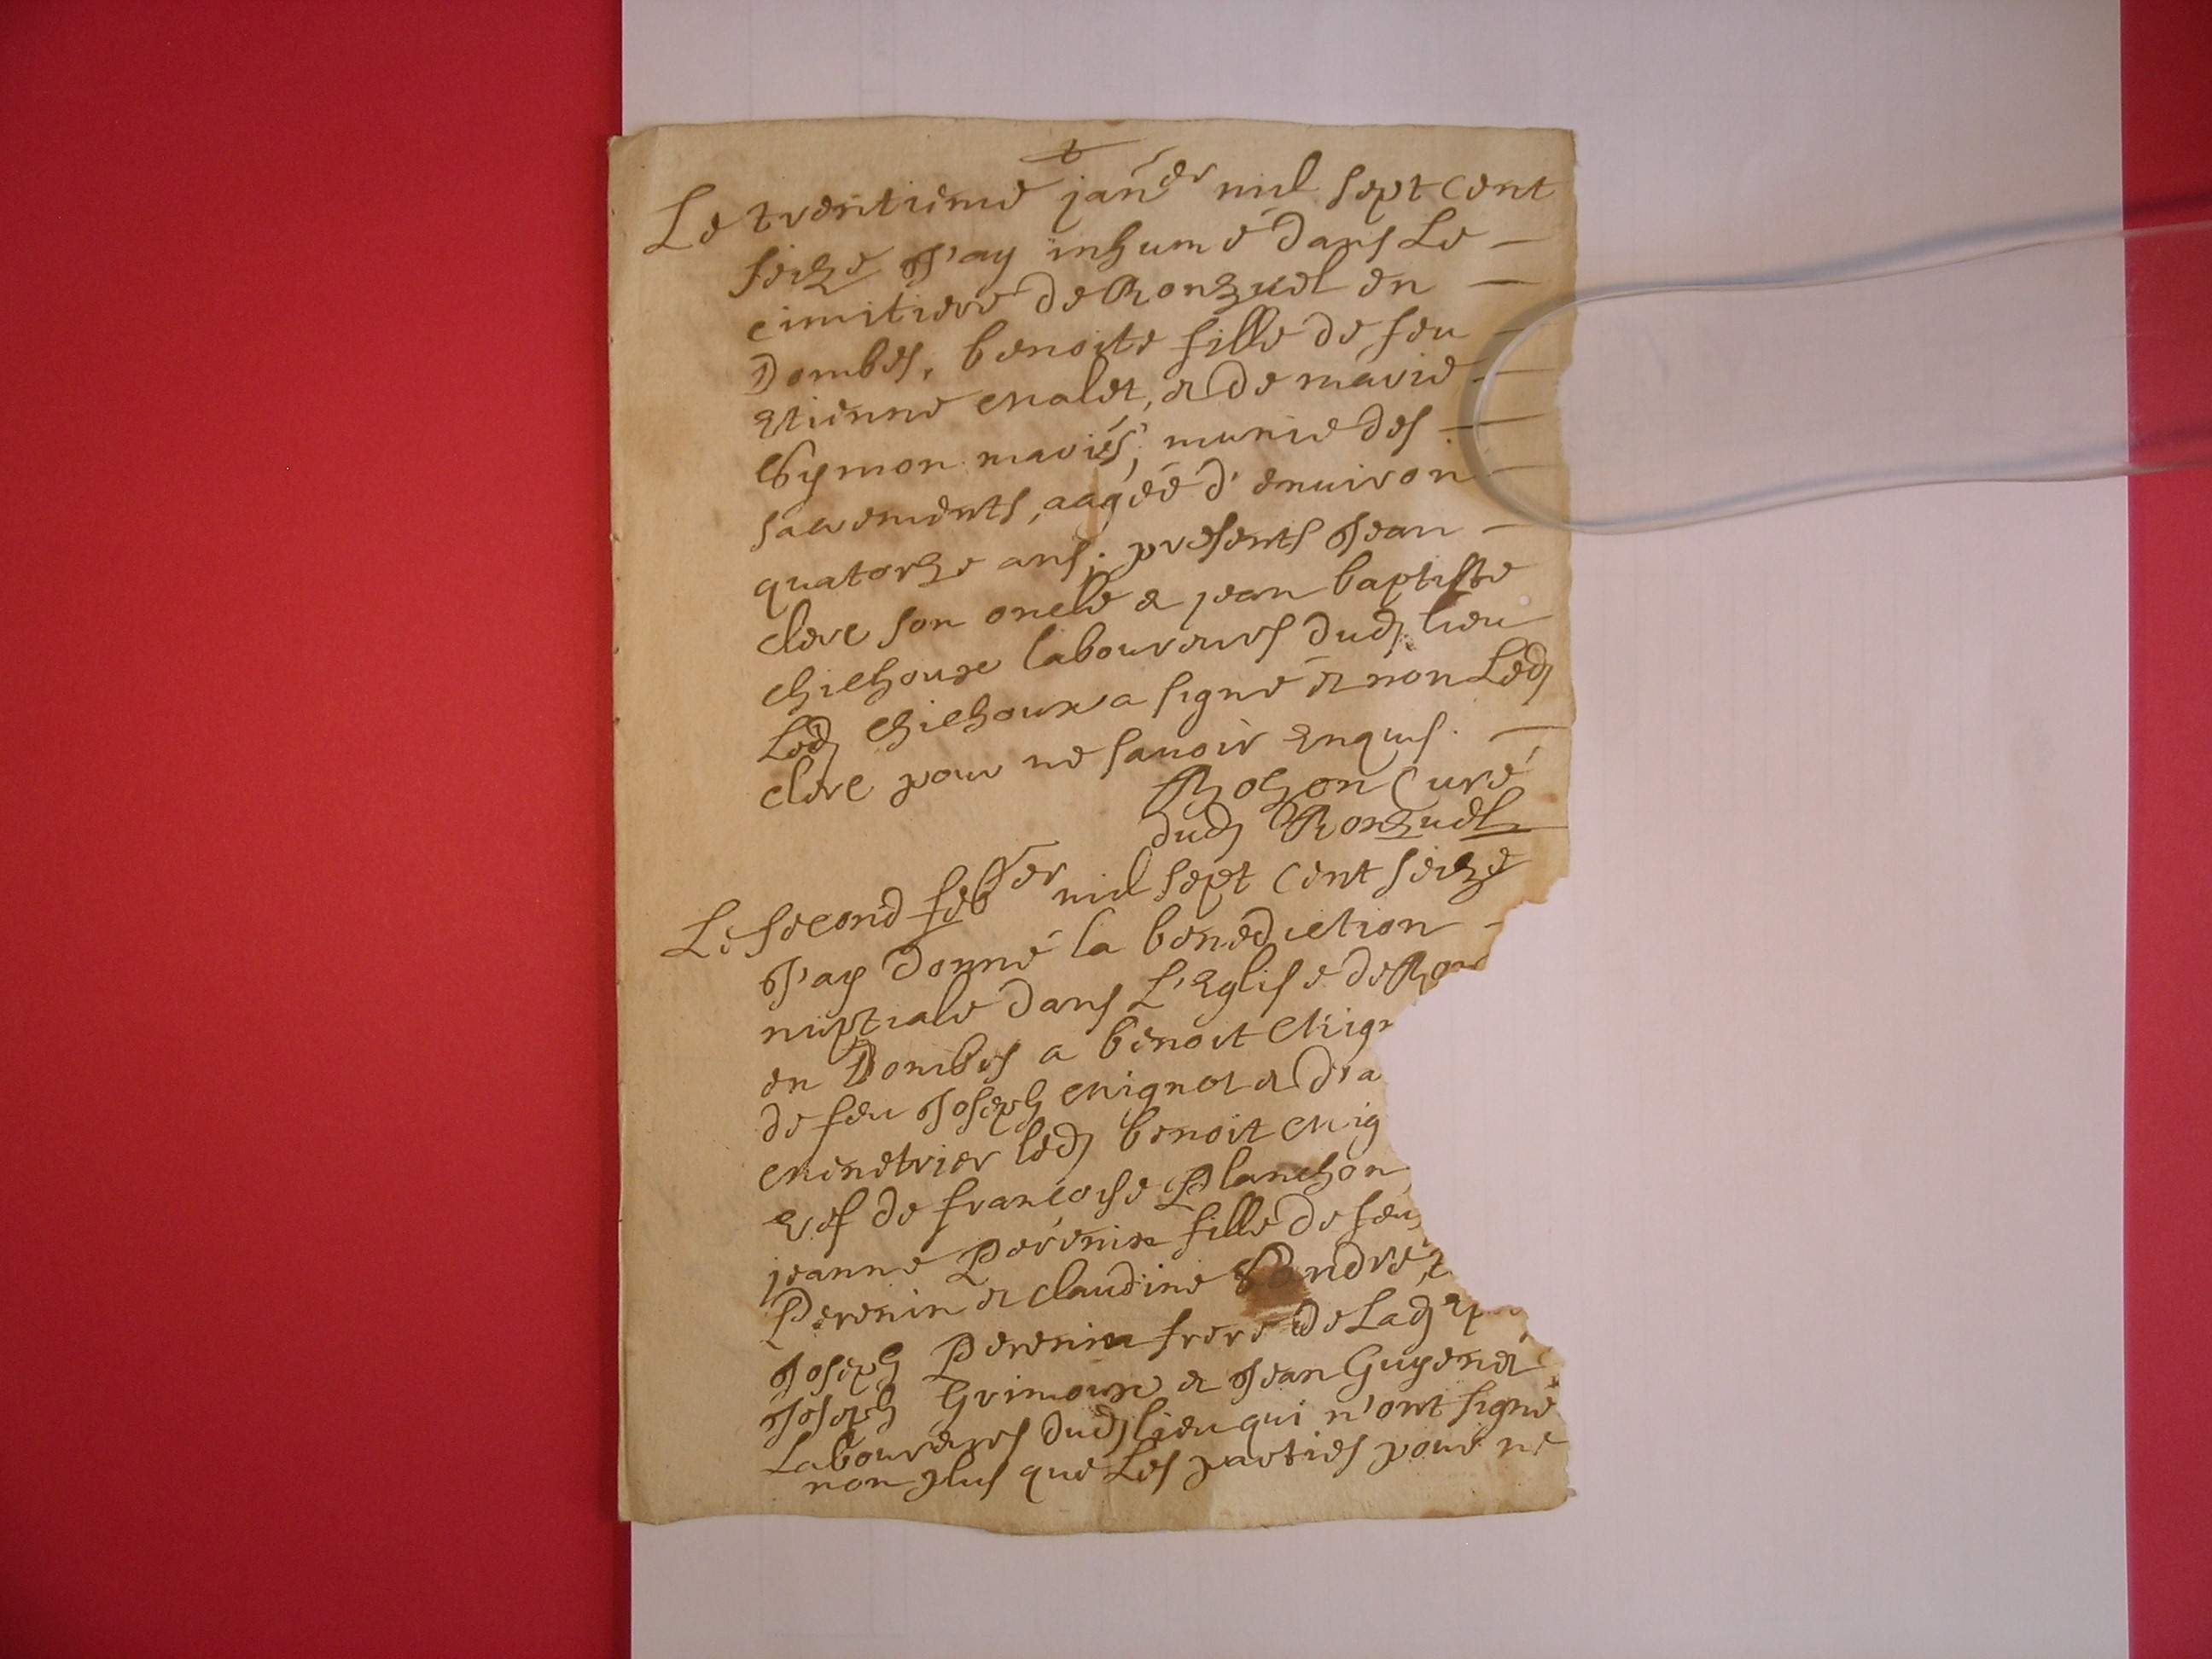 Le trentieme jan^er mil sept cent
seize J'ay inhumé dans Le
cimitiere de Ronzuel en
Dombes, benoite fille de feu
Etienne Malet, et de marie
Symon mariés; munie des
sacrements, aagéé d'environ
quatorze ans; presents Jean
clerc son oncle et jean baptiste
chichoux laboureurs dud. lieu
Led. chichoux a signé et non Led.
clerc pour ne sauoir Enquis.
Rozon Curé
dud. Ronzuel
Le second feb^er mil sept cent seize
J'ay donné la benediction
nuptiale dans L'Eglise de Ron
en Dombes a benoit Mign
de feu Joseph Mignot et d'a
Menetrier led. benoit Mig
vef de françoise Planchon
jeanne Perenin fille de feu
Perenin et claudine
Joseph Perenin frere de Lad. Ep
Joseph Grimoux et Jean Guyenet
Laboureurs dud. lieu qui n'ont signé
non plus que Les parties pour ne